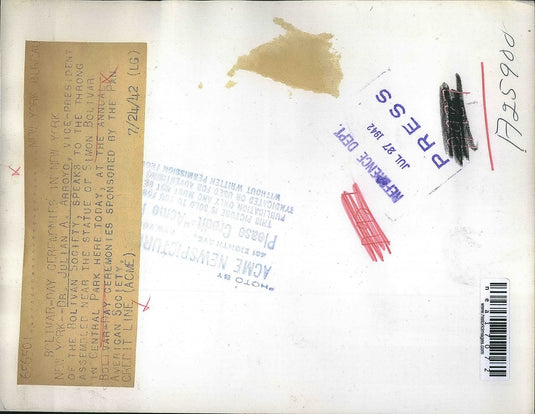 NEW YORK BUREAU
BOLIVAR-DAY CEREMONIES IN NEW YORK
NEW YORK--DR. JULIAN A. ARROYO, VICE-PRESIDENT
OF THE BOLIVAN SOCIETY, SPEAKS TO THE THRONG
ASSEMBLED NEAR THE STATUE OF SIMON BOLIVAR
IN CENTRAL PARK HERE TODAY, AT THE ANNUAL
BOLIVAR-DAY CEREMONIES SPONSORED BY THE PAN
AMERICAN SOCIETY.
CREDIT LINE (ACME) 7/24/42 (LG)
PHOTO BY
ACME NEWSPICTURES
Please Credit "Acme
THIS PICTURE IS SOLD TO YOU FOR
PUBLICATION ONLY AND MUST NOT BE
SYNDICATED OR USED FOR ADVERTISING
WITHOUT WRITTEN PERMISSION FROM
REFERENCE DEPT.
JUL 27 1942
PRESS
A25900
nea17072